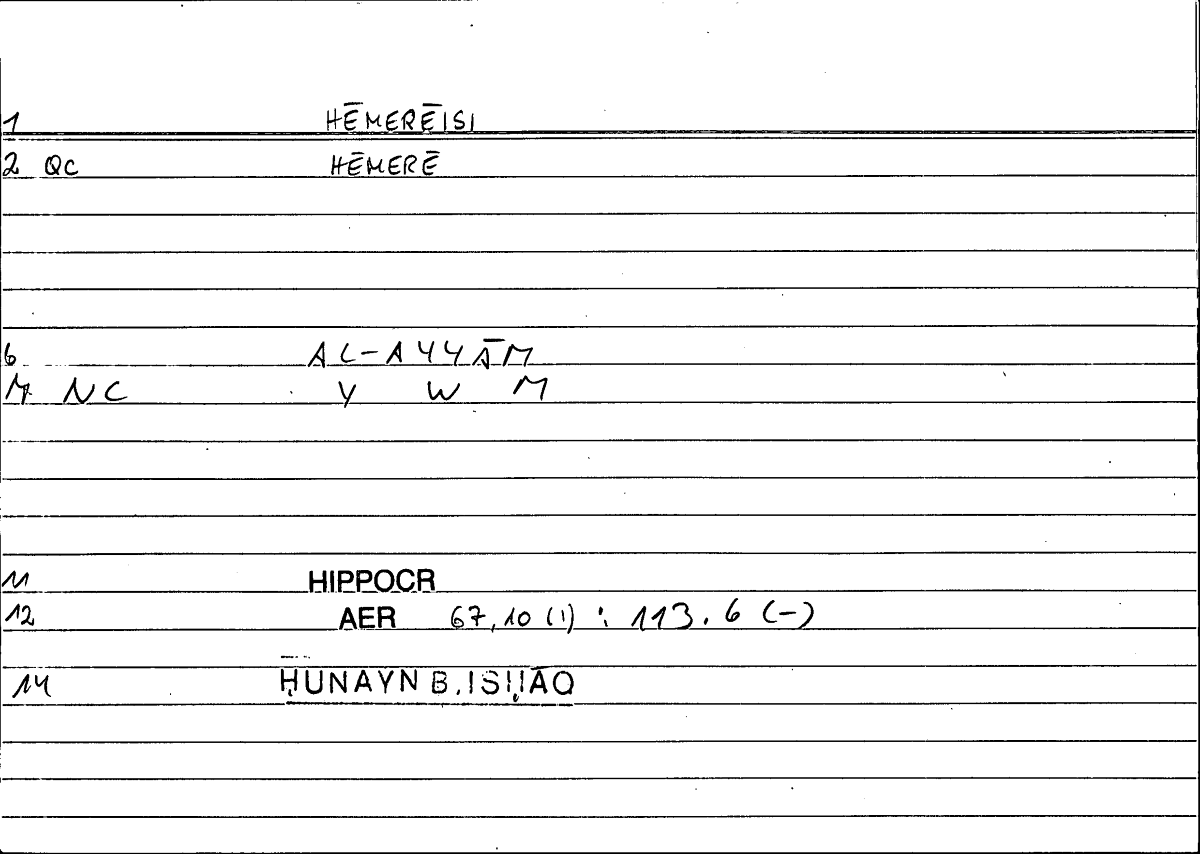 1 HĒMERĒISI
2 Qc HĒMERĒ
6 AL-AYYĀM
M NC Y W M
11 HIPPOCR
12 AER 67,10 (1) : 113.6 (-)
14 ḤUNAYN B. ISḤĀQ